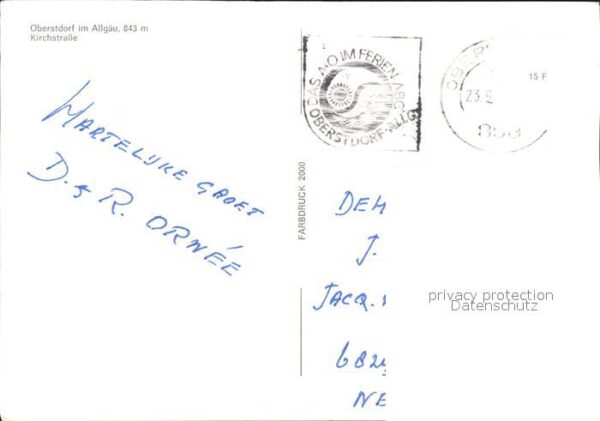 Oberstdorf im Allgäu, 843 m
Kirchstraße
DAS A·O IM FERIEN ABC
OBERSTDORF/ALLG
15 F
HARTELIJKE GROET
D. & R. ORNÉE
FARBDRUCK 2000
DEH
J.
JACQ.
682
NE
privacy protection
Datenschutz